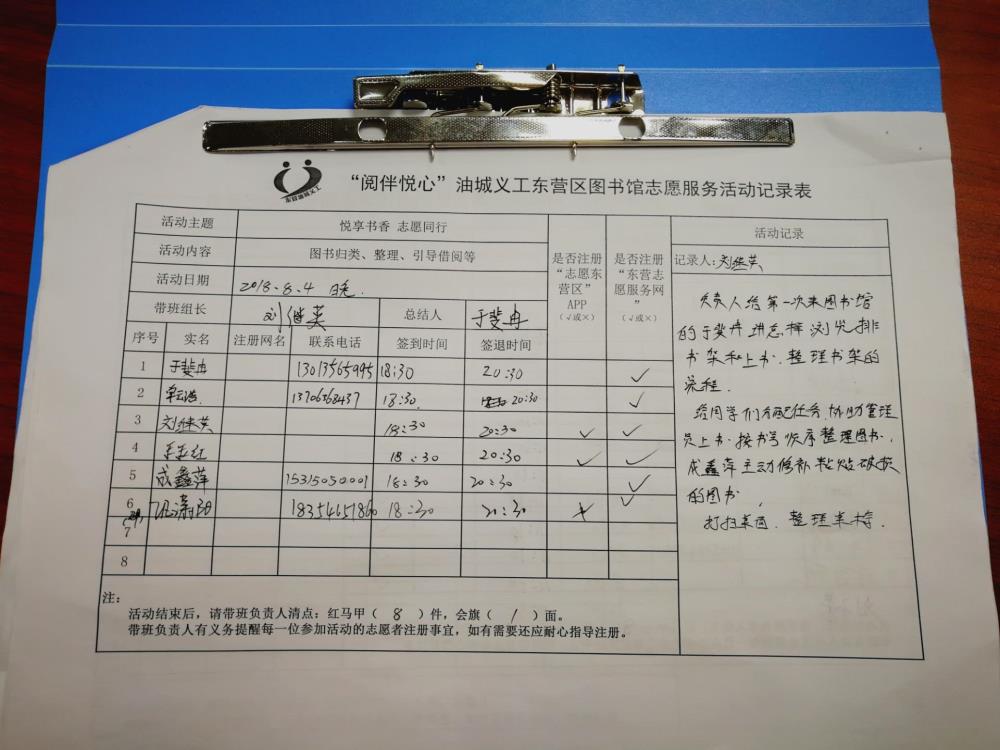 东营油城义工
“阅伴悦心”油城义工东营区图书馆志愿服务活动记录表
活动主题 悦享书香 志愿同行
活动内容 图书归类、整理、引导借阅等
活动日期 2018.8.4 晚.
带班组长 刘继英 总结人 于斐冉
是否注册“志愿东营区”APP(√或×)
是否注册“东营志愿服务网”(√或×)
序号 实名 注册网名 联系电话 签到时间 签退时间
1 于斐冉 13013565995 18:30 20:30 ✓
2 13706368437 18:30. 20:30 ✓
3 刘继英 18:30 20:30 ✓ ✓
4 18:30 20:30 ✓ ✓
5 成鑫萍 15315050001 18:30 20:30 ✓
6 18354651860 18:30 20:30 × ✓
7
8
活动记录
记录人:刘继英
负责人给第一次来图书馆
的于斐冉讲怎样浏览排
书架和上书.整理书架的
流程.
给同学们分配任务,协助管理
员上书.按书号顺序整理图书.
成鑫萍主动修补粘贴破损
的图书.
打扫桌面.整理桌椅.
注:
活动结束后,请带班负责人清点:红马甲( 8 )件,会旗( 1 )面。
带班负责人有义务提醒每一位参加活动的志愿者注册事宜,如有需要还应耐心指导注册。